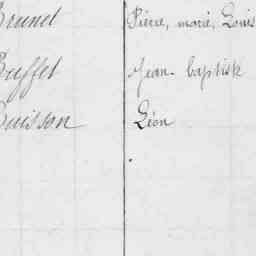 Brunet Pierre, marie, Louis
Buffet Jean-baptiste
Buisson Léon